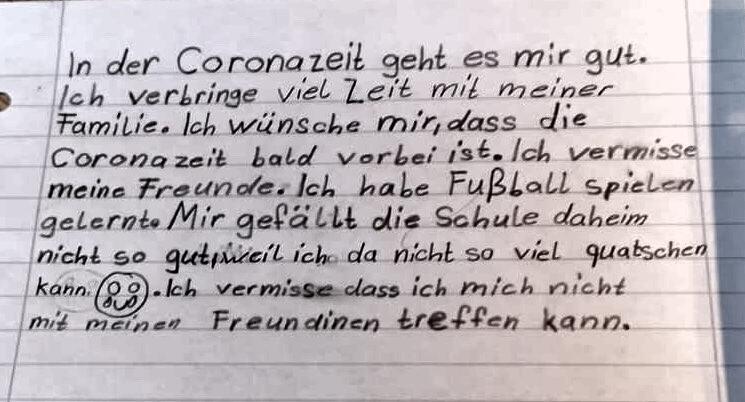 In der Coronazeit geht es mir gut.
Ich verbringe viel Zeit mit meiner
Familie. Ich wünsche mir, dass die
Coronazeit bald vorbei ist. Ich vermisse
meine Freunde. Ich habe Fußball spielen
gelernt. Mir gefällt die Schule daheim
nicht so gut, weil ich da nicht so viel quatschen
kann. . Ich vermisse dass ich mich nicht
mit meinen Freundinen treffen kann.